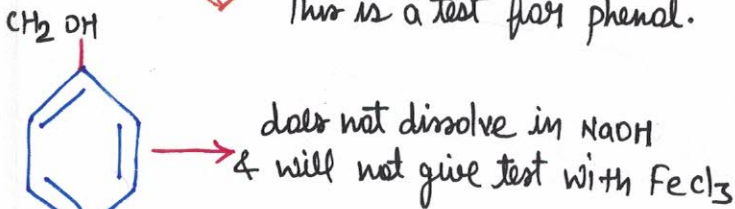 This is a test for phenol.
CH2 OH
does not dissolve in NaOH
& will not give test with FeCl3